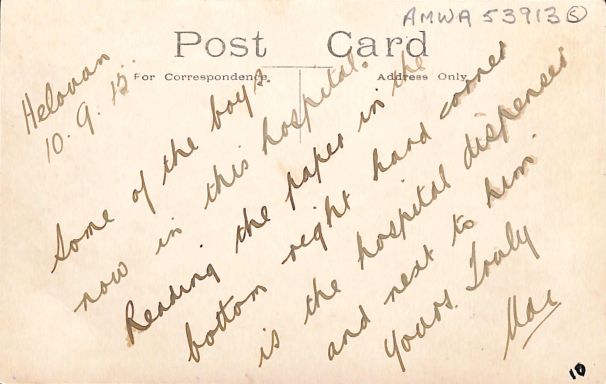 AMWA 53913 5
Post Card
For Correspondence
Address Only
Helouan
10.9.15.
Some of the boys
now in this hospital.
Reading the paper in the
bottom right hand corner
is the hospital dispenser
and next to him
Yours Truly
Mac
10